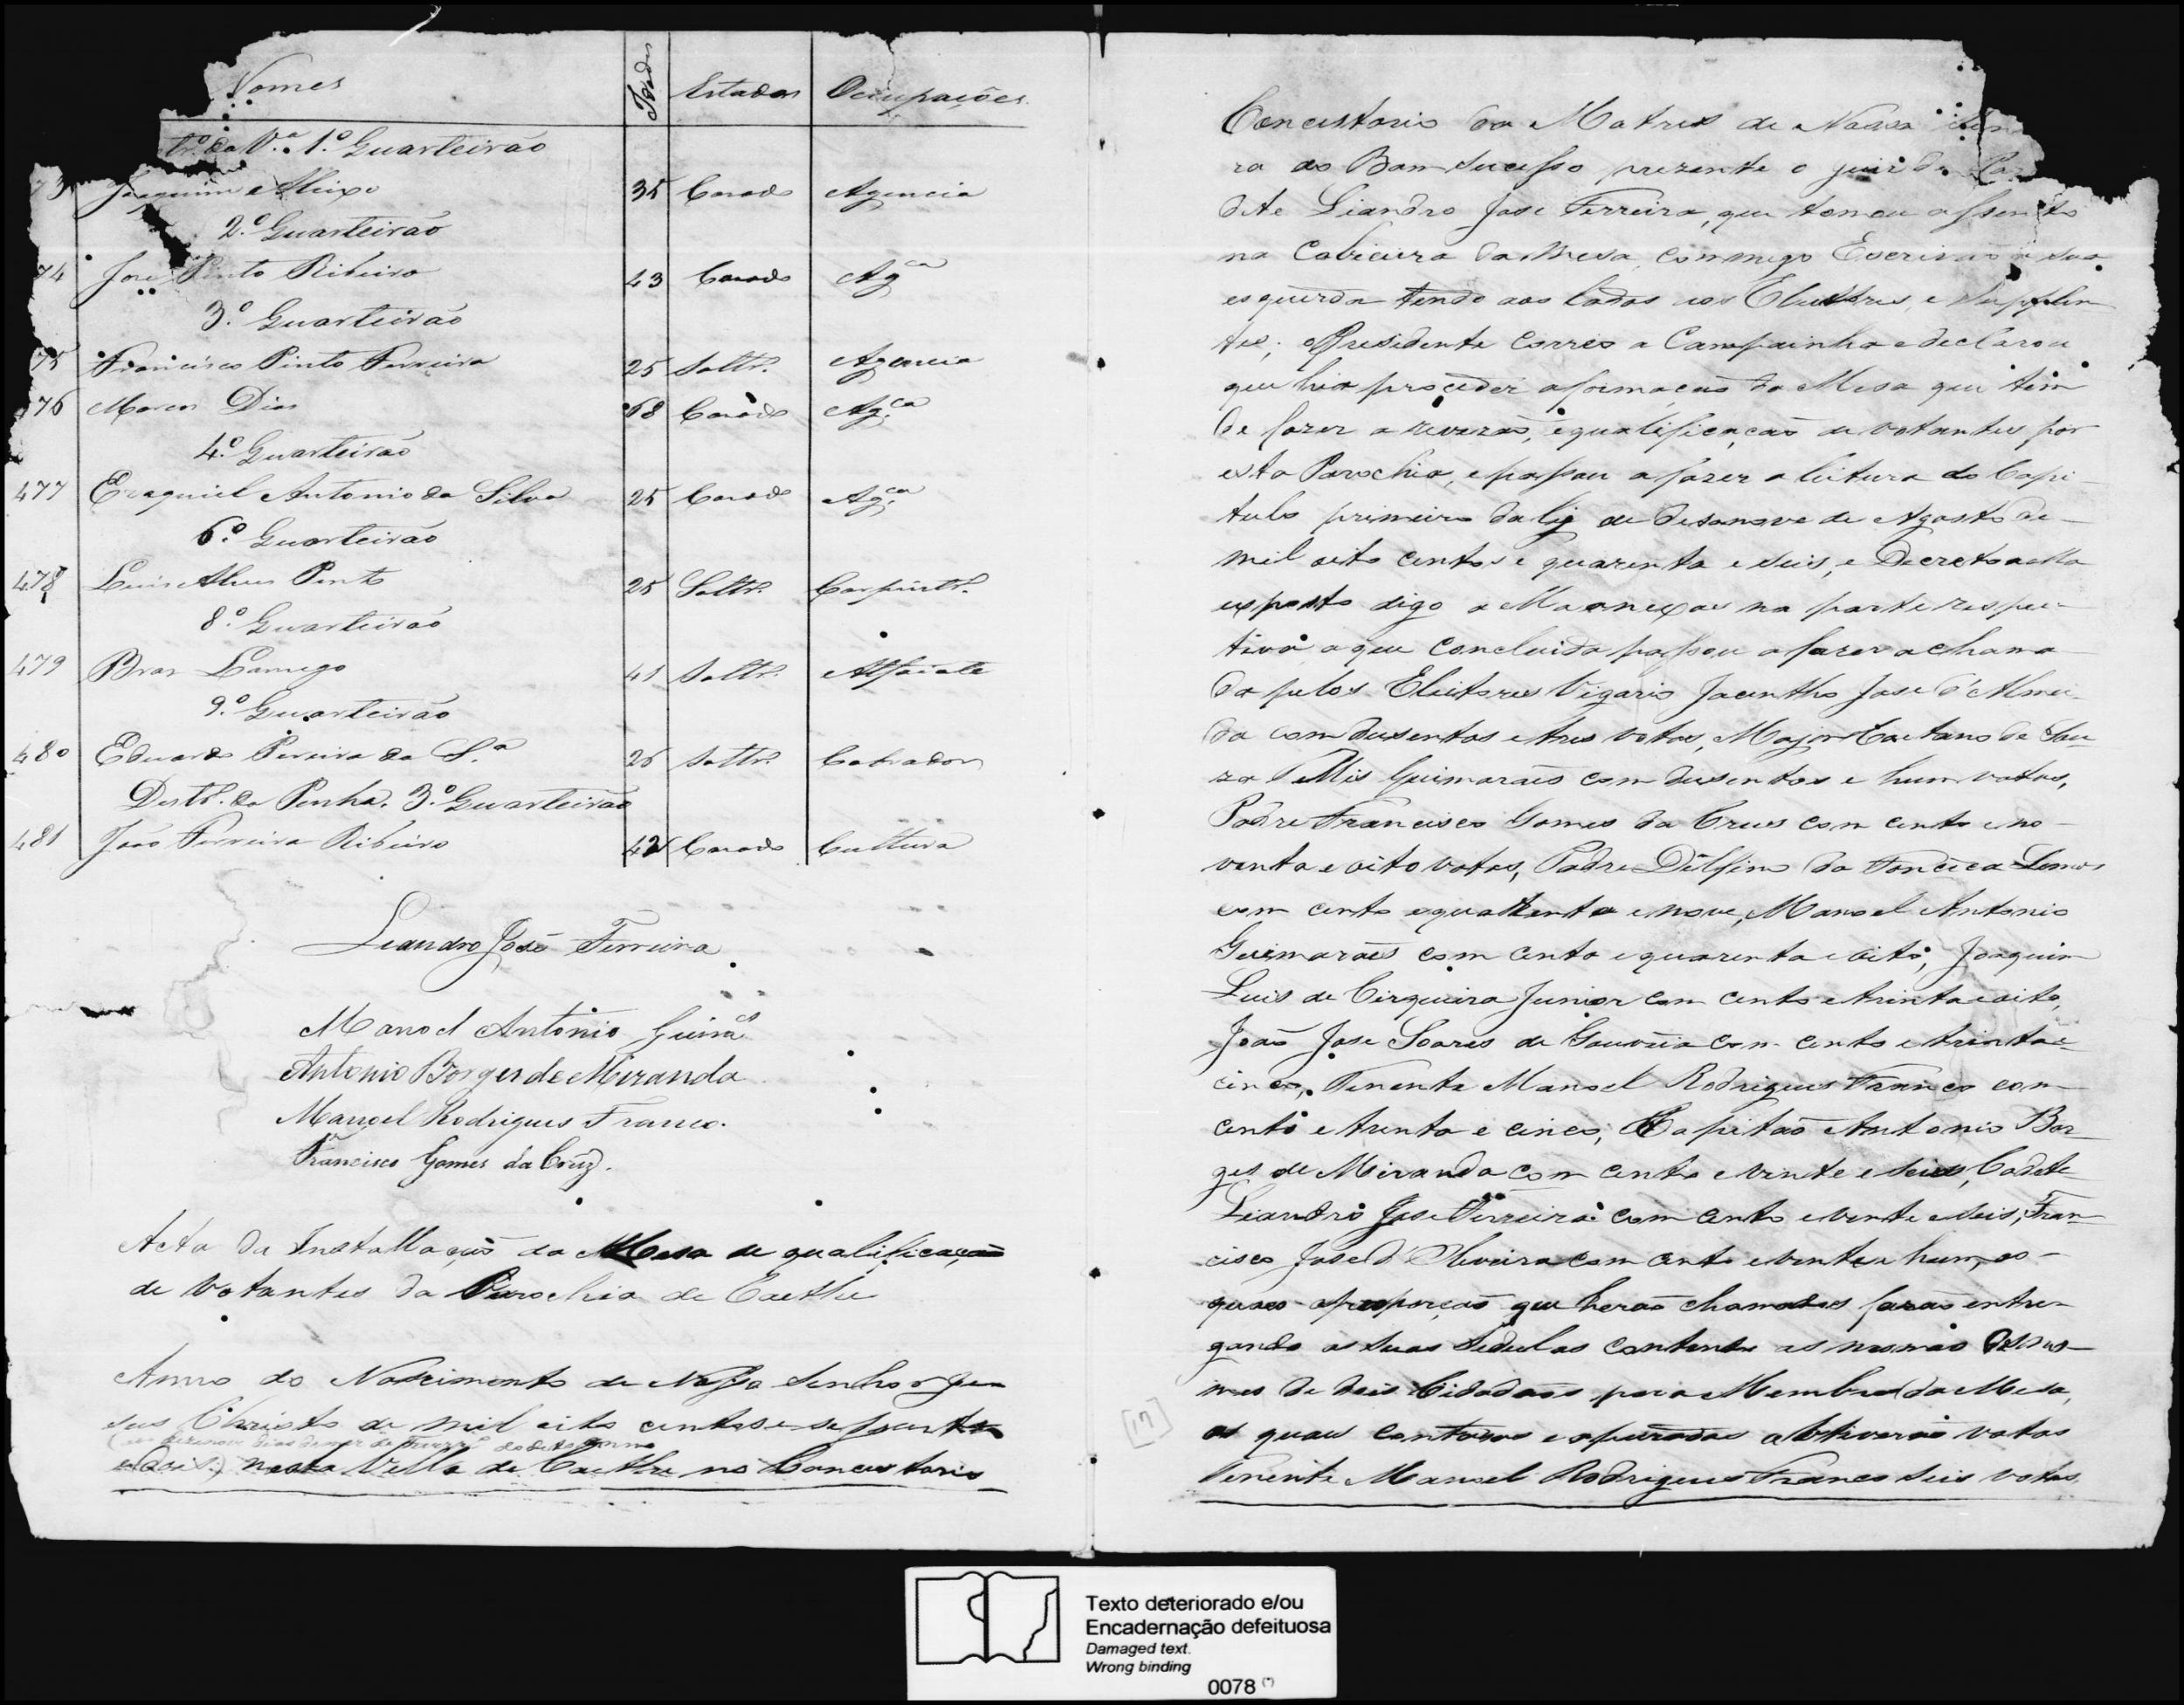 Nomes Idades Estados Ocupações
tr.º da V.ª 1.º Quarteirão
73 Joaquim Aleixo 35 Casado Agencia
2.º Quarteirão
74 José Pinto Ribeiro 43 Casado Ag.ca
3.º Quarteirão
75 Francisco Pinto Ferreira 25 Soltr.º Agencia
76 Marcos Dias 68 Casado Ag.ca
4.º Quarteirão
477 Ezaquiel Antonio da Silva 25 Casado Ag.ca
6.º Quarteirão
478 Luis Alves Pinto 25 Soltr.º Carpintr.º
8.º Quarteirão
479 Bras Lamego 41 Soltr.º Alfaiate
9.º Quarteirão
480 Eduardo Pereira da S.ª 26 Soltr.º Cobrador
Destr.º da Penha. 3.º Quarteirão
481 João Ferreira Ribeiro 42 Casado Cultura
Leandro José Ferreira
Manoel Antonio Guim.es
Antonio Borges de Miranda
Manoel Rodrigues Franco.
Francisco Gomes da Cruz.
Acta da Installação da Mesa de qualificação
de Votantes da Parochia de Caethe
Anno do Nascimento de Nosso Senhor Je-
sus Christo de mil oito centos e setenta
do dito anno
e dois nesta Villa de Caethe no Concistorio
Concistorio da Matris de Nossa
ra do Bom Sucesso prezente o juis de
dete Liandro Jose Ferreira, que tomou assento
na Cabiceira da Mesa, commigo Escrivão a sua
esquerda tendo aos lados os Eleitores, e Supplen
tes; o Presidente correo a Campainha e declarou
que hia proceder a formação da Mesa que tem
de fazer a revizão, e qualificação de votantes por
esta Parochia, e passou a fazer a leitura do Capi-
tulo primeiro da lei de desanove de Agosto de
mil oito centos e quarenta e seis, e Decreto
exposto digo na parte respec-
tiva o que concluido passou a fazer a chama-
da pelos Eleitores Vigario Jacintho Jose d'Almei-
da com dusentos e tres votos, Major Caetano de Sou-
za Telles Guimarães com dusentos e hum votos,
Padre Francisco Gomes da Crus com cento e no-
venta e oito votos, Padre Dilfino da Fonceca Lemos
com cento e quarenta e nove, Manoel Antonio
Guimarães com cento e quarenta e oito, Joaquim
Luis de Cirqueira Junior com cento e trinta e oito,
João Jose Soares de Gouveia com cento e trinta e
cinco, Tenente Manoel Rodrigues Franco com
cento e trinta e cinco, Capitão Antonio Bor-
ges de Miranda com cento e vinte e seis, Cadete
Liandro Jose Ferreira com cento e vinte e seis, Fran-
cisco Jose d'Oliveira com cento e vinte e hum, os
quaes a proporção que herão chamados forão entre-
gando as suas sedulas contendo as mesmas os no-
mes de dois Cidadãos para Membros da Mesa,
as quaes contadas e apuradas obtiverão votos
Tenente Manoel Rodrigues Franco seis votos
[17]
Texto deteriorado e/ou
Encadernação defeituosa
Damaged text.
Wrong binding
0078 (*)